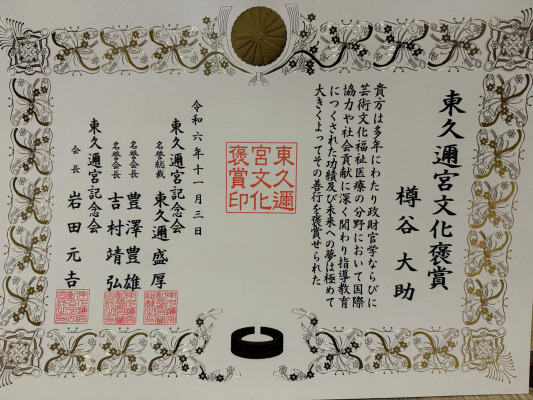 東久邇宮文化褒賞
樽谷大助
貴方は多年にわたり政財官学ならびに
芸術文化福祉医療の分野において国際
協力や社会貢献に深く関わり指導教育
につくされた功績及び未来への夢は極めて
大きくよってその善行を褒賞せられた
東久邇
宮文化
褒賞印
令和六年十一月三日
東久邇宮記念会
名誉総裁 東久邇盛厚
名誉会長 豊澤豊雄
名誉会長 吉村靖弘
東久邇宮記念会
会長 岩田元吉